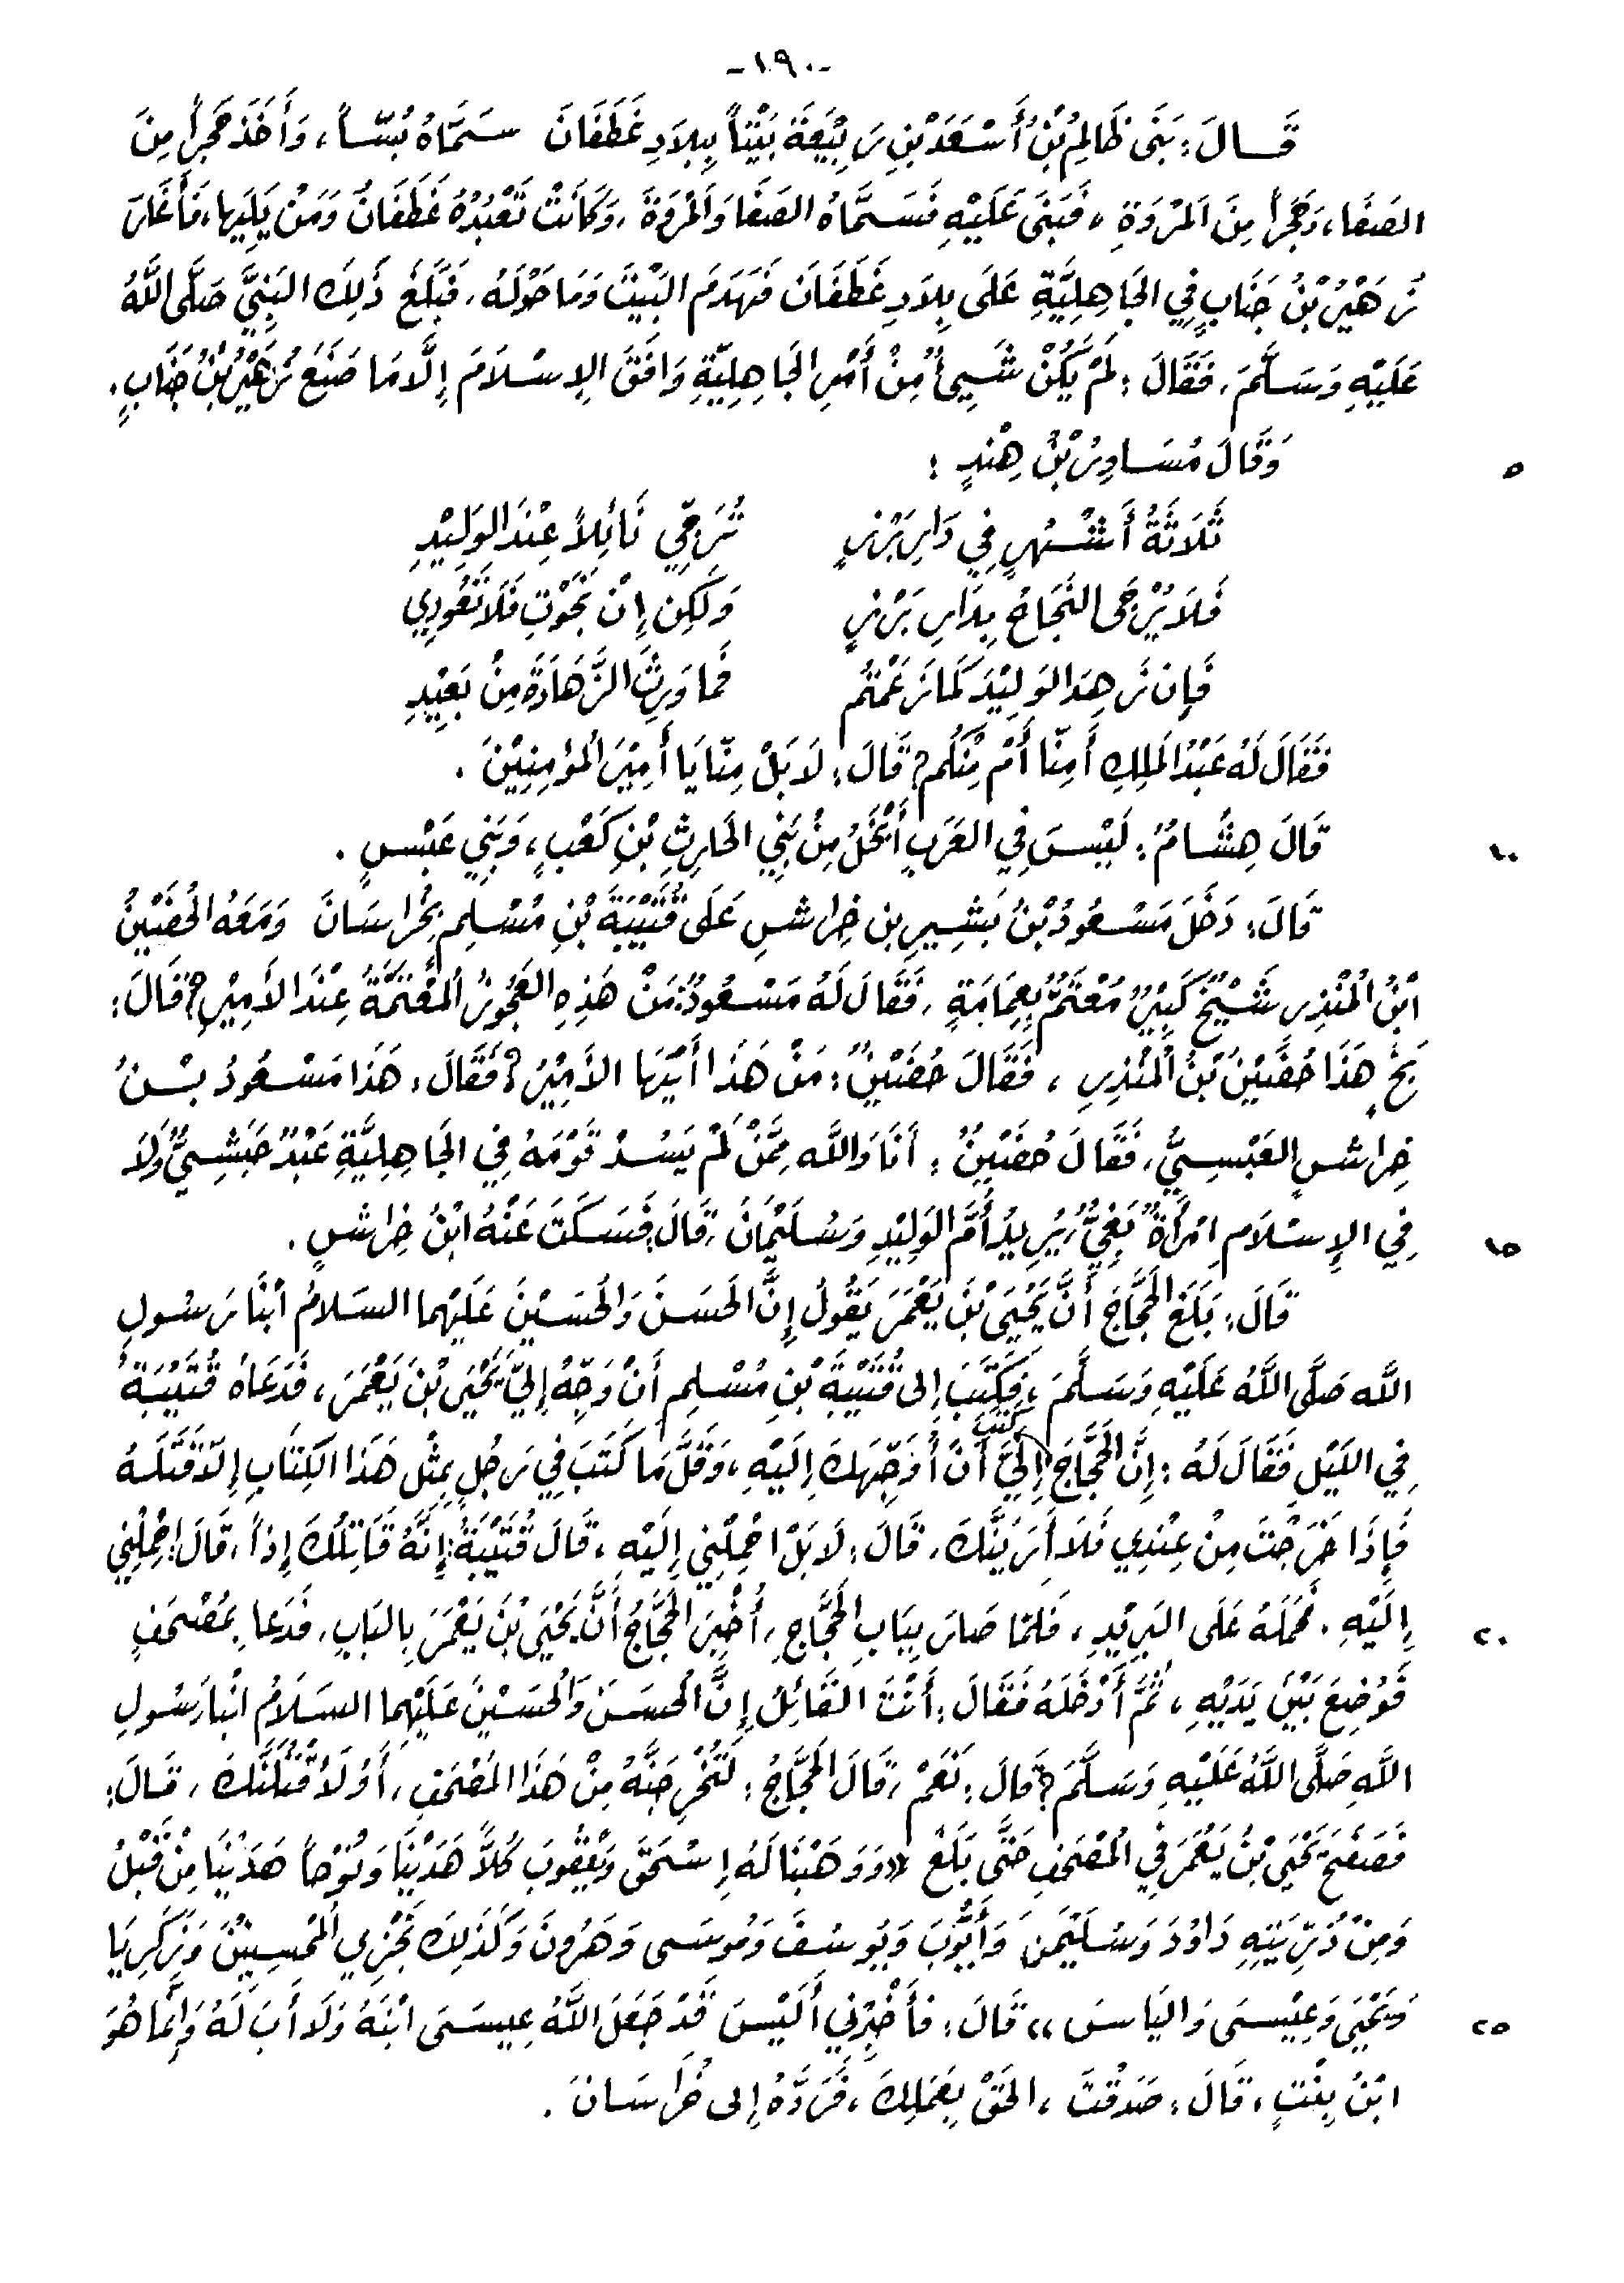 -١٩٠-
قَالَ: بَنَى ظَالِمُ بْنُ أَسْعَدَ بْنِ رَبِيْعَةَ بَيْتاً بِبِلاَدِ غَطَفَانَ سَمَّاهُ بُسّاً، وَأَخَذَ حَجَراً مِنَ
الصَفَا، وَحَجَراً مِنَ المَرْوَةِ، فَبَنَى عَلَيْهِ فَسَمَّاهُ الصَفَا وَالمَرْوَةَ، وَكَانَتْ تَعْبُدُهُ غَطَفَانُ وَمَنْ يَلِيَها، فَأَغَارَ
زُهَيْرُ بْنُ جَنَابٍ فِي الجَاهِلِيَّةِ عَلَى بِلاَدِ غَطَفَانَ فَهَدَمَ البَيْتَ وَمَا حَوْلَهُ، فَبَلَغَ ذَلِكَ النَبِيَّ صَلَّى اللَّهُ
عَلَيْهِ وَسَلَّمَ، فَقَالَ: لَمْ يَكُنْ شَيءٌ مِنْ أَمْرِ الجَاهِلِيَّةِ وَافَقَ الإِسْلاَمَ إِلَّا مَا صَنَعَ زُهَيْرُ بْنُ جَنَابٍ.
وَقَالَ مُسَاوِرُ بْنُ هِنْدٍ: ٥
ثَلَاثَةُ أَشْهُرٍ فِي دَارِ بَرْزٍ تُرَجِّي نَائِلاً عِنْدَ الوَلِيْدِ
فَلاَ يُرْجَى النَجَاحُ بِدَارِ بَرْزٍ وَلَكِن إِنْ نَجَوْتِ فَلاَ تَعُودِي
فَإِن زَهِدَ الوَلِيْدَ كَمَا زَعَمْتُم فَمَا وَرِثَ الزَّهَادَةَ مِنْ بَعِيْدِ
فَقَالَ لَهُ عَبْدُ المَلِكِ أَمِنّا أَمْ مِنْكُم؟ قَالَ: لاَ بَلْ مِنّا يَا أَمِيْرَ المُؤمِنِيْنَ.
قَالَ هِشَامٌ: لَيْسَ فِي العَرَبِ أَبْخَلُ مِنْ بَنِي الحَارِثِ بْنِ كَعْبٍ، وَبَنِي عَبْسٍ. ١٠
قَالَ: دَخَلَ مَسْعُودُ بْنُ بَشِيرِ بِن خِرَاشٍ عَلَى قُتَيْبَةَ بْنِ مُسْلِمٍ بِخُرَاسَانَ وَمَعَهُ الحُضَيْنُ
ابْنُ المُنْذِرِ شَيْخٌ كَبِيْرٌ مُعْتَمٌّ بِعِمَامَةٍ، فَقَالَ لَهُ مَسْعُودٌ: مَنْ هَذِهِ العَجُوزُ المُعْتَمَّةُ عِنْدَ الأَمِيْرِ؟ قَالَ:
بَخٍ هَذَا حُضَيْنُ بْنُ المُنْذِرِ، فَقَالَ حُضَيْنٌ: مَنْ هَذَا أَيّهَا الأَمِيْرُ؟ فَقَالَ: هَذَا مَسْعُودُ بْنُ
خِرَاشٍ العَبْسِيُّ، فَقَالَ حُضَيْنٌ: أَنَا وَاللَّه مِمَّنْ لَمْ يَسُدْ قَوْمَهُ فِي الجَاهِلِيَّةِ عَبْدٌ حَبَشِيٌّ وَلاَ
فِي الإِسْلاَمِ امْرَأَةٌ بَغِيٌّ، يُرِيدُ أُمَّ الوَلِيْدِ وَسُلَيْمَانَ، قَالَ: فَسَكَتَ عَنْهُ ابْنُ خِرَاشٍ. ١٥
قَالَ: بَلَغَ الحَجَّاجَ أَنَّ يَحْيَى بْنَ يَعْمَرَ يَقُولُ إِنَّ الحَسَنَ وَالحُسَيْنَ عَلَيْهِما السَلامُ ابْنَا رَسُولِ
اللَّه صَلَّى اللَّهُ عَلَيْهِ وَسَلَّمَ، فَكَتَبَ إِلى قُتَيْبَةَ بْنِ مُسْلِمٍ أَنْ وَجِّهْ إِليَّ يَحْيَى بْنَ يَعْمَرَ، فَدَعَاهُ قُتَيْبَةُ
فِي اللَيْلِ فَقَالَ لَهُ: إِنَّ الحَجَّاجَ كَتَبَ إِلَيَّ أَنْ أُوَجِّهَكَ إِلَيْهِ، وَقَلَّ مَا كَتَبَ فِي رَجُلٍ بِمِثْلِ هَذَا الكِتَابِ إِلاَّ قَتَلَهُ
فَإِذَا خَرَجْتَ مِنْ عِنْدِي فَلاَ أَرَيَنَّكَ، قَالَ: لاَ بَلْ احْمِلْنِي إِلَيْهِ، قَالَ قُتَيْبَةُ: إِنَّهُ قَاتِلُكَ إِذاً، قَالَ: احْمِلْنِي
إِلَيْهِ. فَحَمَلَهُ عَلَى البَرِيْدِ، فَلَمّا صَارَ بِبَابِ الحَجَّاجِ، أُخْبِرَ الحَجَّاجُ أَنَّ يَحْيَى بْنَ يَعْمَرَ بِالبَابِ، فَدَعا بِمُصْحَفٍ ٢٠
فَوُضِعَ بَيْنَ يَدَيْهِ، ثُمَّ أَدْخَلَهُ فَقَالَ: أَنْتَ القَائِلُ إِنَّ الحَسَنَ وَالحُسَيْنَ عَلَيْهِما السَلَامُ ابْنا رَسُولِ
اللَّهِ صَلَّى اللَّهُ عَلَيْهِ وَسَلَّمَ؟ قَالَ: نَعَمْ، قَالَ الحَجَّاجُ: لَتُخْرِجَنَّهُ مِنْ هَذَا المُصْحَفِ، أَوْ لَأَقْتُلَنَّكَ، قَالَ:
فَصَفَحَ يَحْيَى بْنُ يَعْمَرَ فِي المُصْحَفِ حَتَّى بَلَغَ «وَوَهَبْنَا لَهُ إِسْحَقَ وَيَعْقُوبَ كُلاًّ هَدَيْنَا وَنُوْحاً هَدَيْنَا مِنْ قَبْلُ
وَمِنْ ذُرِّيَتِهِ دَاوُدَ وَسُلَيْمَنَ وَأَيُّوبَ وَيُوسُفَ وَمُوسَى وَهَرُونَ وَكَذَلِكَ نَجْزِي المُحْسِنِيْنَ وَزَكَرِيَا
وَيَحْيَى وَعِيْسَى وَاليَاسَ» قَالَ: فَأَخْبِرْنِي أَلَيْسَ قَدْ جَعَلَ اللَّهُ عِيسَى ابْنَهُ وَلَا أَبَ لَهُ وَإِنَّما هُوَ ٢٥
ابْنُ بِنْتٍ، قَالَ: صَدَقْتَ، الحَقْ بِعَمَلِكَ، فَرَدَّهُ إِلى خُرَاسَانَ.